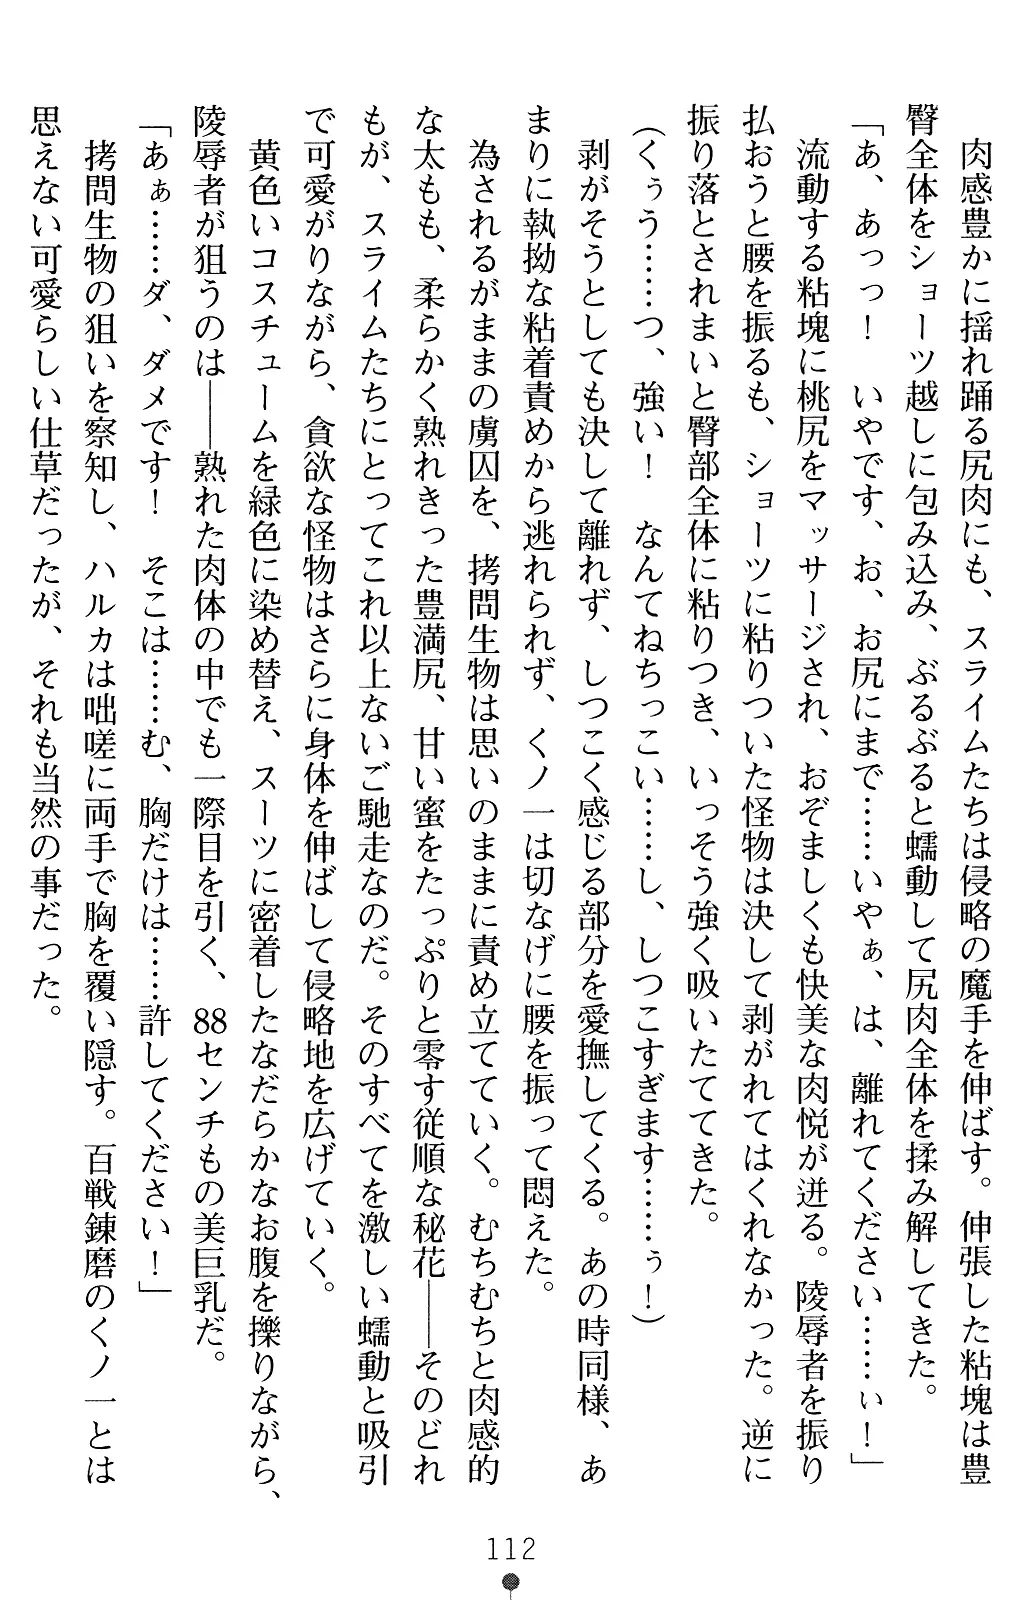 肉感豊かに揺れ踊る尻肉にも、スライムたちは侵略の魔手を伸ばす。伸張した粘塊は豊
臀全体をショーツ越しに包み込み、ぶるぶると蠕動して尻肉全体を揉み解してきた。
「あ、あっっ！　いやです、お、お尻にまで……いやぁ、は、離れてください……ぃ！」
流動する粘塊に桃尻をマッサージされ、おぞましくも快美な肉悦が迸る。陵辱者を振り
払おうと腰を振るも、ショーツに粘りついた怪物は決して剥がれてはくれなかった。逆に
振り落とされまいと臀部全体に粘りつき、いっそう強く吸いたててきた。
（くぅう……つ、強い！　なんてねちっこい……し、しつこすぎます……ぅ！）
剥がそうとしても決して離れず、しつこく感じる部分を愛撫してくる。あの時同様、あ
まりに執拗な粘着責めから逃れられず、くノ一は切なげに腰を振って悶えた。
為されるがままの虜囚を、拷問生物は思いのままに責め立てていく。むちむちと肉感的
な太もも、柔らかく熟れきった豊満尻、甘い蜜をたっぷりと零す従順な秘花――そのどれ
もが、スライムたちにとってこれ以上ないご馳走なのだ。そのすべてを激しい蠕動と吸引
で可愛がりながら、貪欲な怪物はさらに身体を伸ばして侵略地を広げていく。
黄色いコスチュームを緑色に染め替え、スーツに密着したなだらかなお腹を擽りながら、
陵辱者が狙うのは――熟れた肉体の中でも一際目を引く、88センチもの美巨乳だ。
「あぁ……ダ、ダメです！　そこは……む、胸だけは……許してください！」
拷問生物の狙いを察知し、ハルカは咄嗟に両手で胸を覆い隠す。百戦錬磨のくノ一とは
思えない可愛らしい仕草だったが、それも当然の事だった。
112